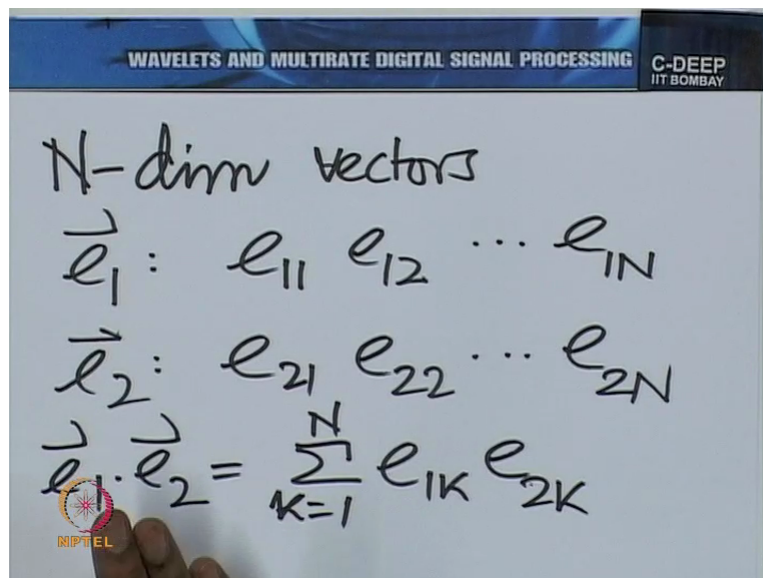 WAVELETS AND MULTIRATE DIGITAL SIGNAL PROCESSING
C-DEEP
IIT BOMBAY
N-dim vectors
\vec{e}_1 : e_{11} e_{12} ... e_{1N}
\vec{e}_2 : e_{21} e_{22} ... e_{2N}
\vec{e}_1 . \vec{e}_2 = \sum_{K=1}^{N} e_{1K} e_{2K}
NPTEL